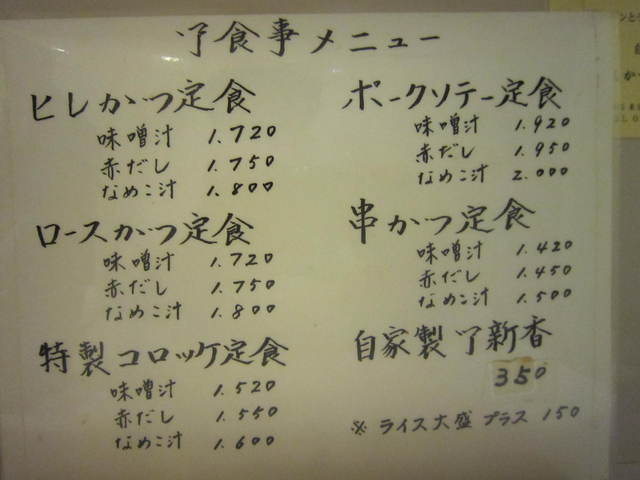 お食事メニュー
ヒレかつ定食
味噌汁 1.720
赤だし 1.750
なめこ汁 1.800
ロースかつ定食
味噌汁 1.720
赤だし 1.750
なめこ汁 1.800
特製コロッケ定食
味噌汁 1.520
赤だし 1.550
なめこ汁 1.600
ポークソテー定食
味噌汁 1.920
赤だし 1.950
なめこ汁 2.000
串かつ定食
味噌汁 1.420
赤だし 1.450
なめこ汁 1.500
自家製お新香
350
※ ライス大盛 プラス 150